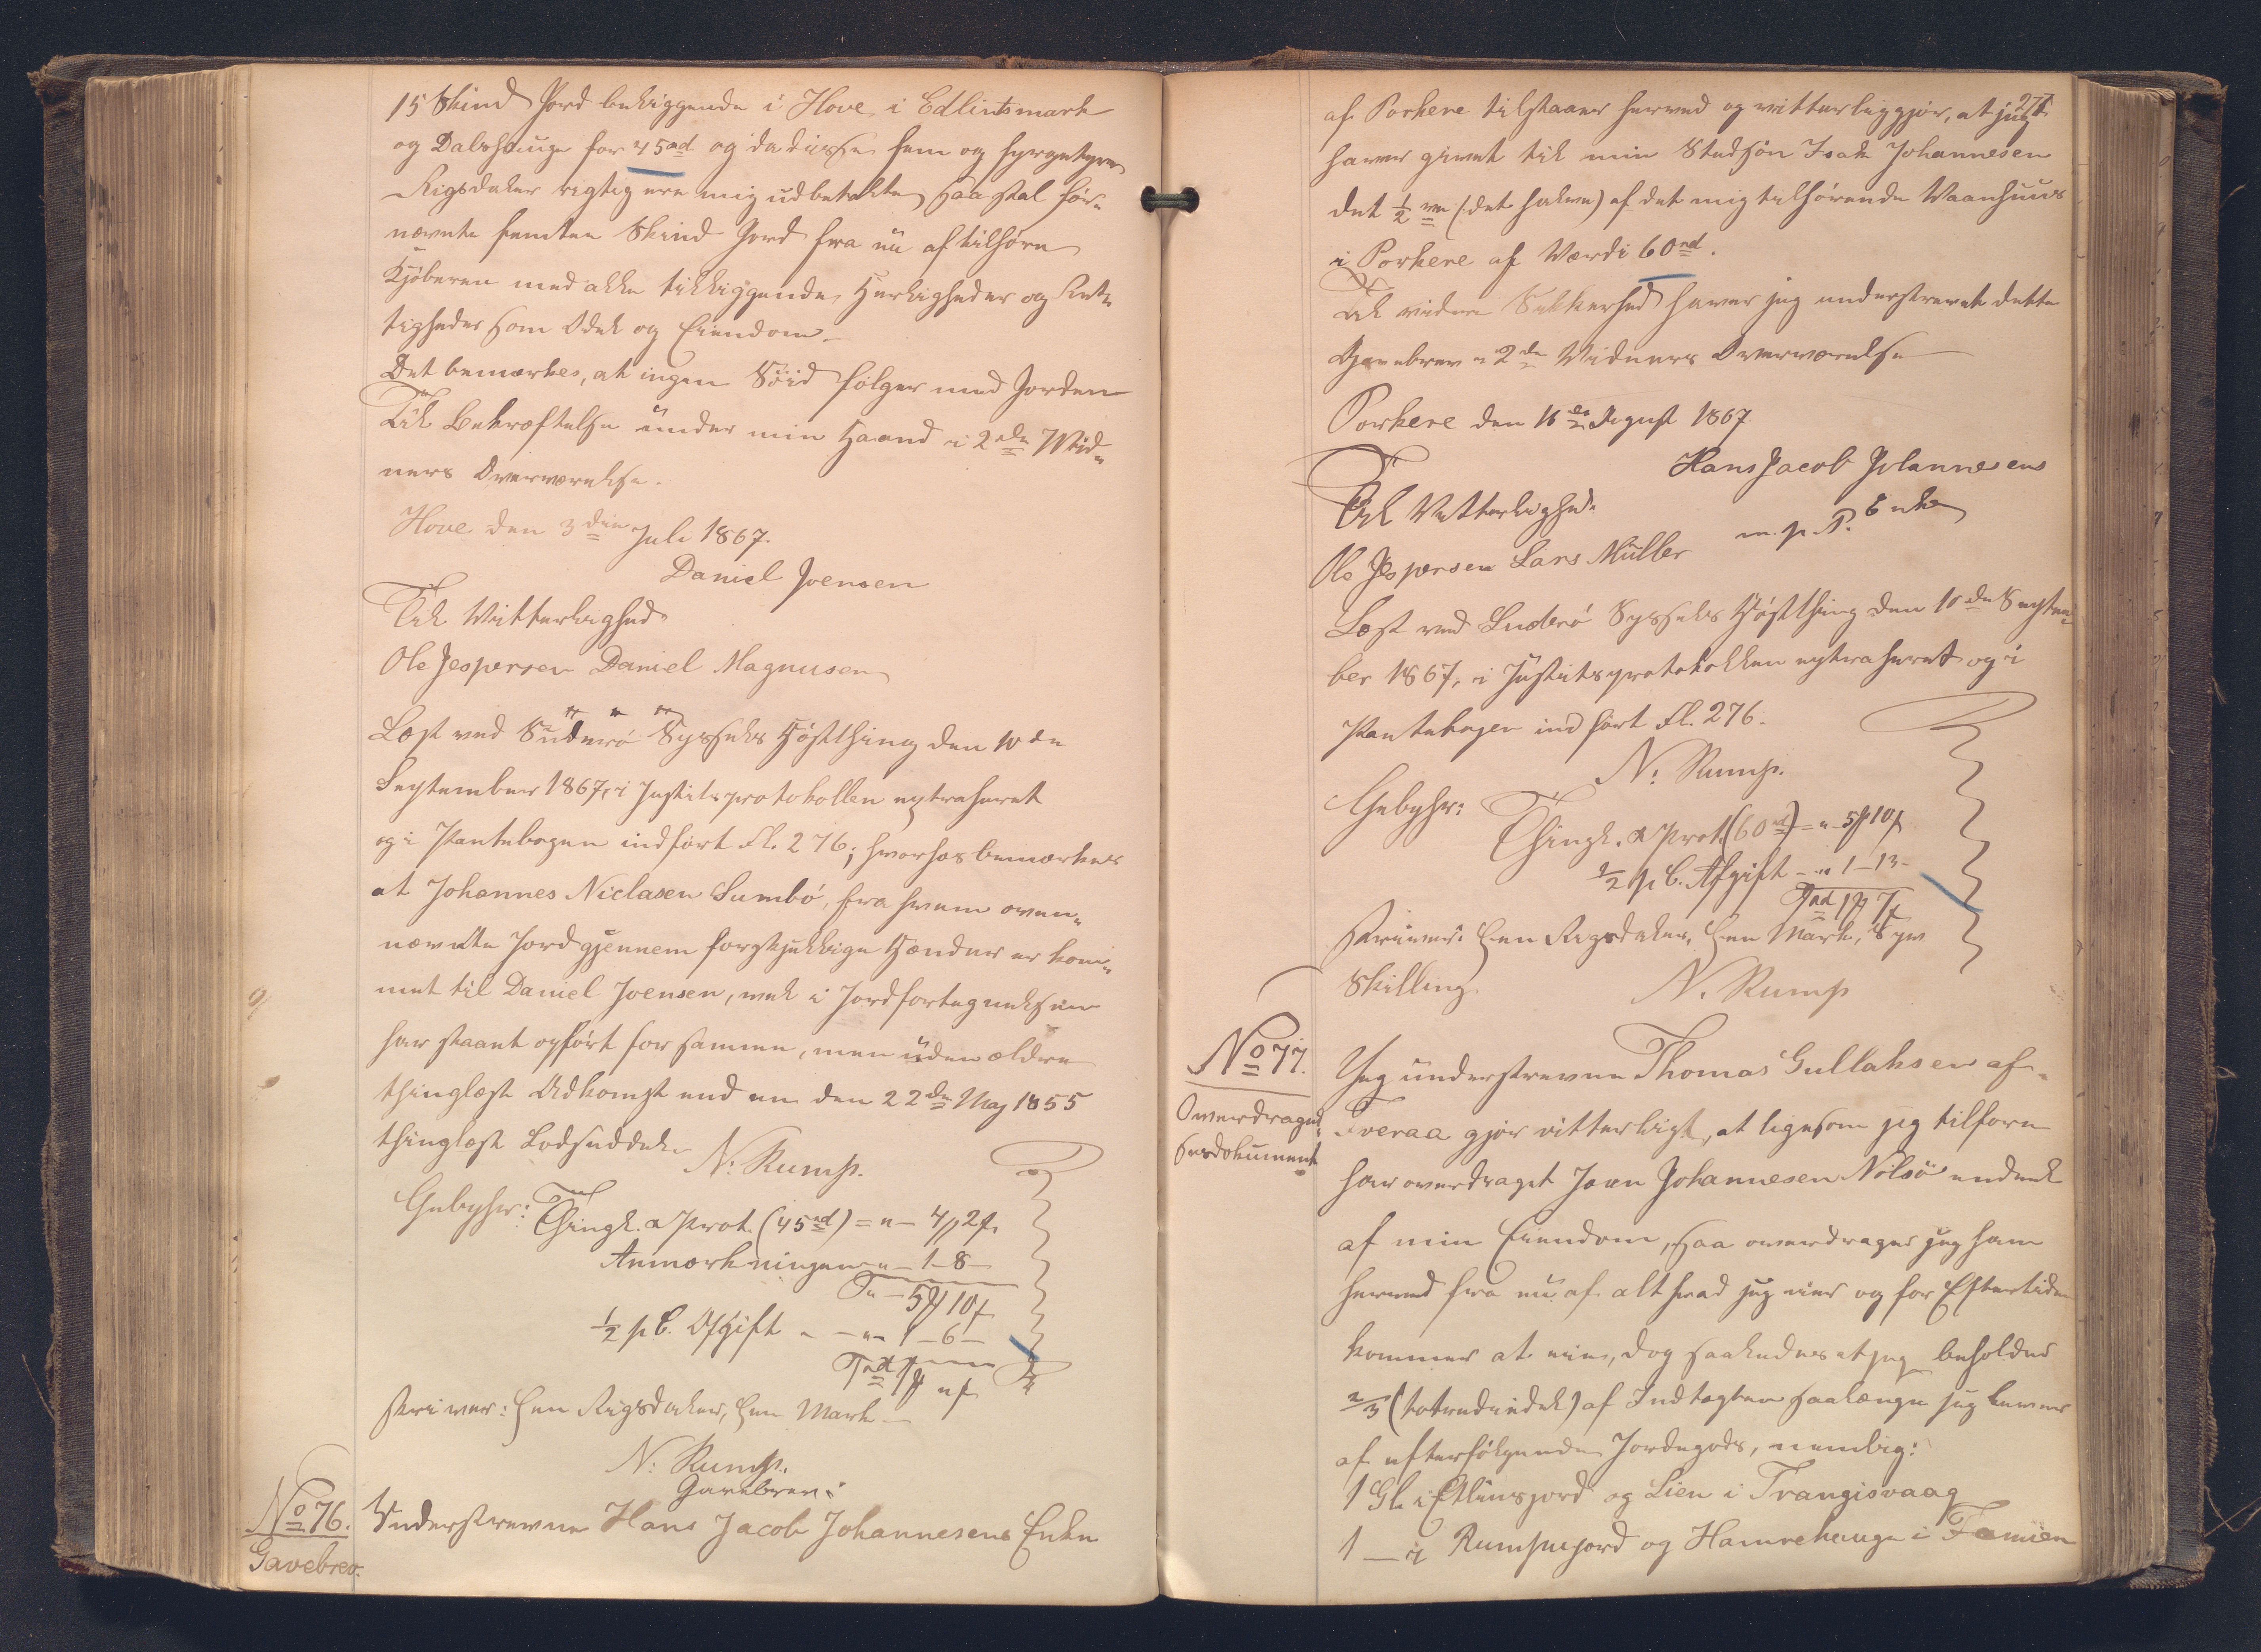 15 Skind Jord beliggende i Hove i Edlintsmark
og Dalshauge for 45 rd og da disse fem og fyrgetyve
Rigsdaler rigtig ere mig udbetalte, saa skal før„
nævnte femten Skind Jord fra nu af tilhøre
Kjøberen med alle tilliggende Herligheder og Ret„
tigheder som Odel og Eiendom.
Det bemærkes, at ingen Söid følger med Jorden
Til Bekræftelse under min Haand i 2de Vid„
ners Overværelse.
Hove den 3die Juli 1867.
Daniel Joensen
Til Vitterlighed
Ole Jespersen Daniel Magnusen
Læst ved Suderø Syssels Høstthing den 10de
September 1867, i Justitsprotokollen extraheret
og i Pantebogen indført Fl. 276; hvorhos bemærkes
at Johannes Niclasen Sumbø, fra hvem oven„
nævnte Jord gjennem forskjellige Hænder er kom„
met til Daniel Joensen, vel i Jordfortegnelsen
har staaet opført for samme, men uden ældre
thinglæst Adkomst end en den 22de Maj 1855
thinglæst Lodseddel.
N. Rump.
Gebyhr: Thingl. & Prot. (45 rd) = „ – 4 ℳ 2 ß
Anmærkningen „ – 1 – 8 –
„ – 5 ℳ 10 ß
½ p C. Afgift – „ – 1 – 6 –
1 rd 1 ℳ „ ß
skriver: Een Rigsdaler, Een Mark –
N. Rump.
No 76. Gavebrev:
Underskrevne Hans Jacob Johannesens Enke
Gavebrev.
271
af Porkere tilstaaer herved og vitterliggjør, at jeg
haver givet til min Stedsøn Isak Johannesen
det ½ ve (det halve) af det mig tilhørende Vaanhuus
i Porkere af Værdi 60 rd.
Til videre Sikkerhed haver jeg underskrevet dette
Gavebrev i 2de Vidners Overværelse
Porkere den 16de August 1867
Hans Jacob Johannesens
Enke
m. p. P.
Til Vitterlighed.
Ole Jespersen Lars Müller
Læst ved Suderø Syssels Høstthing den 10de Septem„
ber 1867, i Justitsprotokollen extraheret og i
Pantebogen indført Fl. 276.
N. Rump.
Gebyhr:
Thingl. & Prot. (60 rd) = „ – 5 ℳ 10 ß
½ p C. Afgift – „ 1 – 13 –
1 rd 1 ℳ 7 ß
skriver: Een Rigsdaler, Een Mark, Syv
Skilling.
N. Rump
No 77. Jeg underskrevne Thomas Gullaksen af
Overdragel„
sesdokument
Fveraa gjør vitterligt, at ligesom jeg tilforn
har overdraget Joen Johannesen Nölsö endeel
af min Eiendom, saa overdrager jeg ham
herved fra nu af alt hvad jeg eier og for Eftertiden
kommer at eie, dog saaledes at jeg beholder
2/3 (totrediedel) af Indtægten saalænge jeg lever
af efterfølgende Jordegods, nemlig:
1 Gl. i Etlinsjord og Lien i Trangisvaag
1 – i Rumpujord og Hamrehauge i Famien